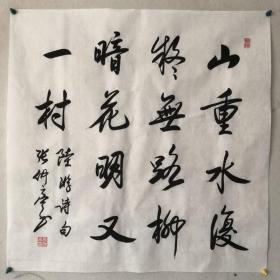 山重水復
疑無路柳
暗花明又
一村
陸游詩句
张